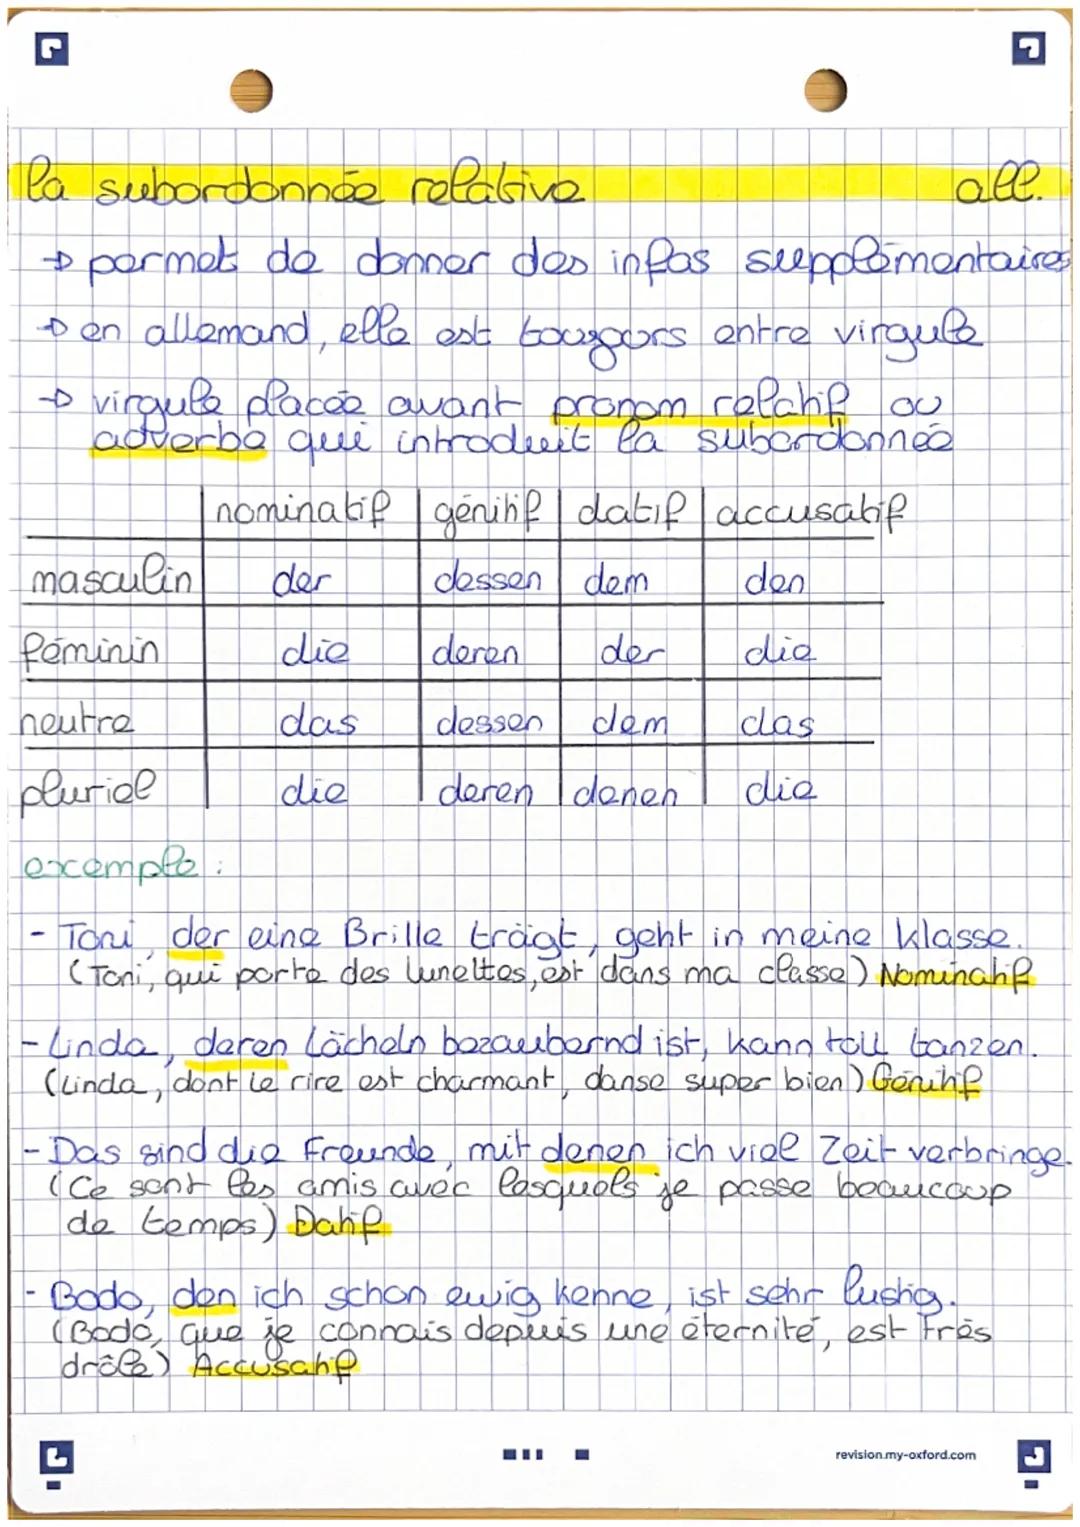 la subordonnée relative all.
→ permet de donner des infos supplémentaires
→ en allemand, elle est toujours entre virgule
→ virgule placée avant pronom relatif ou
adverbe qui introduit la subordonnée
nominatif génitif datif accusatif
masculin der dessen dem den
féminin die deren der die
neutre das dessen dem das
pluriel die deren denen die
exemple :
- Toni, der eine Brille trägt, geht in meine Klasse.
(Toni, qui porte des lunettes, est dans ma classe) Nominatif
- Linda, deren Lächeln bezaubernd ist, kann toll tanzen.
(Linda, dont le rire est charmant, danse super bien) Génitif
- Das sind die Freunde, mit denen ich viel Zeit verbringe.
(Ce sont les amis avec lesquels je passe beaucoup
de temps) Datif
- Bodo, den ich schon ewig kenne, ist sehr lustig.
(Bodo, que je connais depuis une éternité, est très
drôle) Accusatif
revision.my-oxford.com